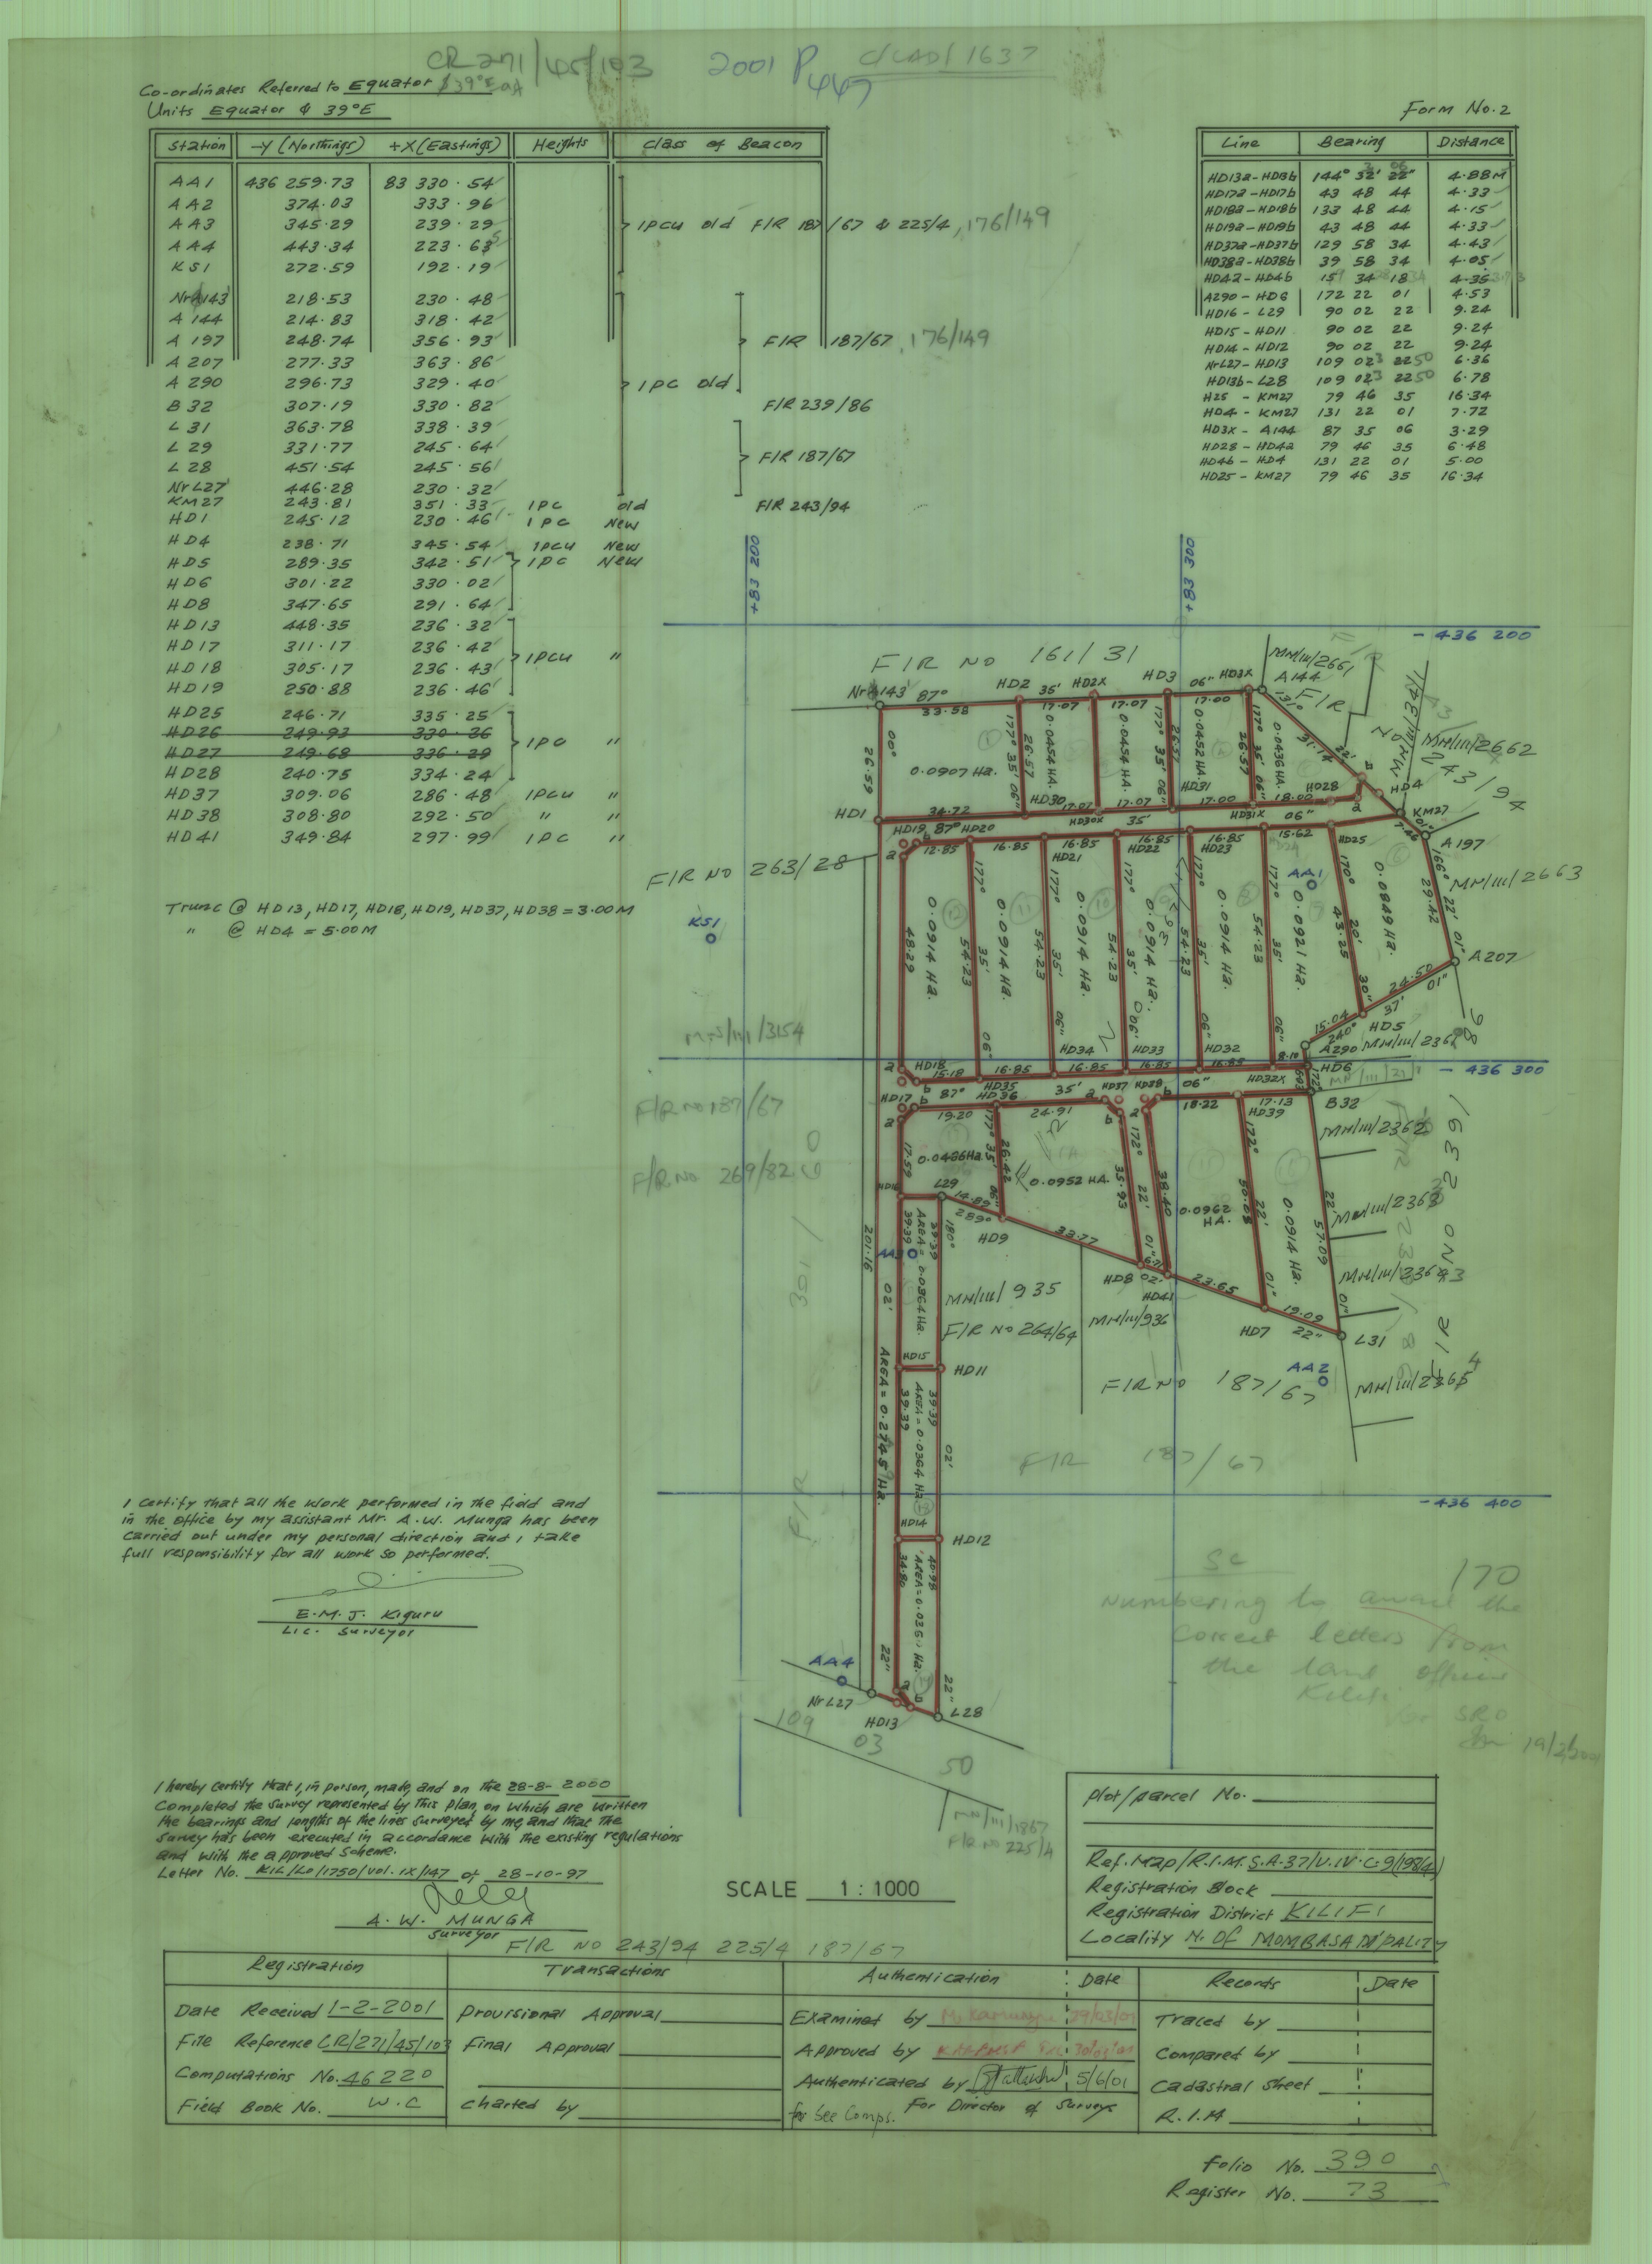 CR 271/45/103 2001 P 447 C/CAD/1637
Co-ordinates Referred to Equator & 39°E
Units Equator & 39°E
Form No. 2
Station -Y (Northings) +X (Eastings) Heights Class of Beacon
AA1 436 259.73 83 330.54
AA2 374.03 333.96
AA3 345.29 239.29 IPCU old F/R 187/67 & 225/4, 176/149
AA4 443.34 223.63
KS1 272.59 192.19
NrA143 218.53 230.48
A 144 214.83 318.42
A 197 248.74 356.93 F/R 187/67, 176/149
A 207 277.33 363.86
A 290 296.73 329.40 IPC old
B 32 307.19 330.82 F/R 239/86
L 31 363.78 338.39
L 29 331.77 245.64 F/R 187/67
L 28 451.54 245.56
NrL27 446.28 230.32
KM27 243.81 351.33 IPC old F/R 243/94
HD1 245.12 230.46 IPC New
HD4 238.71 345.54 IPCU New
HD5 289.35 342.51 IPC New
HD6 301.22 330.02
HD8 347.65 291.64
HD13 448.35 236.32
HD17 311.17 236.42
HD18 305.17 236.43 IPCU "
HD19 250.88 236.46
HD25 246.71 335.25
HD26 249.93 330.36
HD27 249.68 336.29 IPC "
HD28 240.75 334.24
HD37 309.06 286.48 IPCU "
HD38 308.80 292.50 " "
HD41 349.84 297.99 IPC "
Trunc @ HD13, HD17, HD18, HD19, HD37, HD38 = 3.00M
" @ HD4 = 5.00M
Line Bearing Distance
HD13a-HD13b 144° 32' 22" 4.88M
HD17a-HD17b 43 48 44 4.33
HD18a-HD18b 133 48 44 4.15
HD19a-HD19b 43 48 44 4.33
HD37a-HD37b 129 58 34 4.43
HD38a-HD38b 39 58 34 4.05
HD4a-HD4b 15 34 18 4.36
A290-HD6 172 22 01 4.53
HD16-L29 90 02 22 9.24
HD15-HD11 90 02 22 9.24
HD14-HD12 90 02 22 9.24
NrL27-HD13 109 03 50 6.36
HD13b-L28 109 03 50 6.78
H25-KM27 79 46 35 16.34
HD4-KM27 131 22 01 7.72
HD3X-A144 87 35 06 3.29
HD28-HD4a 79 46 35 6.48
HD4b-HD4 131 22 01 5.00
HD25-KM27 79 46 35 16.34
+83 200
+83 300
-436 200
F/R NO 161/31
MN/III/2661
A144
NrA143 87° HD2 35' HD2X HD3 06" HD3X
33.58 17.07 17.07 17.00
31.14 22'
F/R NO 243/94
MN/III/2662
26.59 00°
0.0907 Ha.
177° 35' 06" 26.57
0.0454 HA.
0.0454 HA.
177° 35' 06" 26.57
0.0452 HA.
177° 35' 06" 26.57
0.0436 HA.
HD1 34.72 HD30 17.07 HD30X 17.07 35' HD31 17.00 HD31X 18.00 06" HD28 HD4 KM27
HD19 87° HD20
12.85 16.85 HD21 16.85 HD22 16.85 HD23 15.62 HD25
7.46 A197
MN/III/2663
166° 22' 01" 29.42
F/R NO 263/28
AA1
KS1
48.29 0.0914 Ha.
177° 35' 06" 54.23
0.0914 Ha.
177° 35' 06" 54.23
0.0914 Ha.
177° 35' 06" 54.23
0.0914 Ha.
177° 35' 06" 54.23
0.0914 Ha.
177° 35' 06" 54.23
0.0921 Ha.
170° 20' 30" 43.25
0.0849 Ha.
A207
24.50 37' 01"
15.04 240° HD5
MN/III/3154
A290 MN/III/2361
HD18 HD34 HD33 HD32
15.18 16.85 16.85 16.85 16.85 8.10 HD6
-436 300
HD17 87° HD35 HD36 35' HD37 HD38 06" HD32X
19.20 24.91 18.22 17.13 B32
HD39
F/R NO 187/67
F/R NO 269/82
17.59 0.0436Ha.
177° 35' 06" 26.42
0.0952 HA.
172° 22' 01" 35.93
38.40
0.0962 HA.
172° 22' 01" 50.08
0.0914 Ha.
22' 57.09 01"
MN/III/2362
F/R NO 239/86
HD16 L29 14.89 289° HD9 33.77 HD8 02' HD41 23.65 HD7 19.09 22" L31
AA3
201.16
39.39 AREA = 0.0364 Ha. 39.39 180°
02'
MN/III/935
F/R NO 264/64
MN/III/936
AA2
F/R NO 187/67
HD15 HD11
AREA = 0.2745 Ha.
39.39 AREA = 0.0364 Ha. 39.39 02'
F/R 187/67
-436 400
HD14 HD12
34.80 40.98
22" 22"
AA4
NrL27 HD13 L28
109 03 50
MN/III/1867
F/R NO 225/4
I certify that all the work performed in the field and
in the office by my assistant Mr. A.W. Munga has been
carried out under my personal direction and I take
full responsibility for all work so performed.
E.M.J. Kiguru
Lic. Surveyor
SC 170
Numbering to await the
correct letters from
the land officer
Kilifi
SRO
19/2/2001
I hereby certify that I, in person, made, and on the 28-8-2000
completed the survey represented by this plan, on which are written
the bearings and lengths of the lines surveyed by me, and that the
survey has been executed in accordance with the existing regulations
and with the approved scheme.
Letter No. KIL/LO/1750/Vol.IX/147 of 28-10-97
A.W. MUNGA
Surveyor
SCALE 1:1000
F/R NO 243/94 225/4 187/67
Plot/parcel No.
Ref. Map/R.I.M. S.A.37/U.IV.C.9/(984)
Registration Block
Registration District KILIFI
Locality N. OF MOMBASA M'PALITY
Registration Transactions Authentication Date Records Date
Date Received 1-2-2001 Provisional Approval Examined by Traced by
File Reference CR/271/45/103 Final Approval Approved by Compared by
Computations No. 46220 Authenticated by 5/6/01 Cadastral Sheet
Field Book No. W.C Charted by for See Comps. For Director of Surveys R.I.M
Folio No. 390
Register No. 73